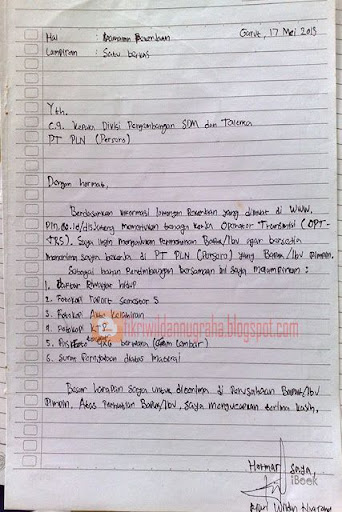 Hal : Lamaran Pekerjaan Garut, 17 Mei 2013
Lampiran : Satu berkas
Yth.
C.q. Kepala Divisi Pengembangan SDM dan Talenta
PT PLN (Persero)
Dengan hormat,
Berdasarkan informasi lowongan Pekerjaan yang dimuat di WWW.
Pln.co.id/disjateng memerlukan tenaga kerja Operator Transmisi (OPT-
TRS). Saya ingin mengajukan Permohonan Bapak/Ibu agar bersedia
menerima saya bekerja di PT PLN (Persero) yang Bapak/Ibu Pimpin.
Sebagai bahan Pertimbangan bersamaan ini saya melampirkan :
1. Daftar Riwayat hidup
2. Fotokopi raport Semester 5
3. Fotokopi Akta Kelahiran
4. Fotokopi KTP
hkriwildannugraha.blogspot.com
5. Pas Foto 4x6 berwarna (enam lembar)
6. Surat Pernyataan diatas Materai
Besar harapan saya untuk diterima di Perusahaan Bapak/Ibu
Pimpin. Atas Perhatian Bapak/Ibu, saya mengucapkan terima kasih.
Hormat saya,
iBoek